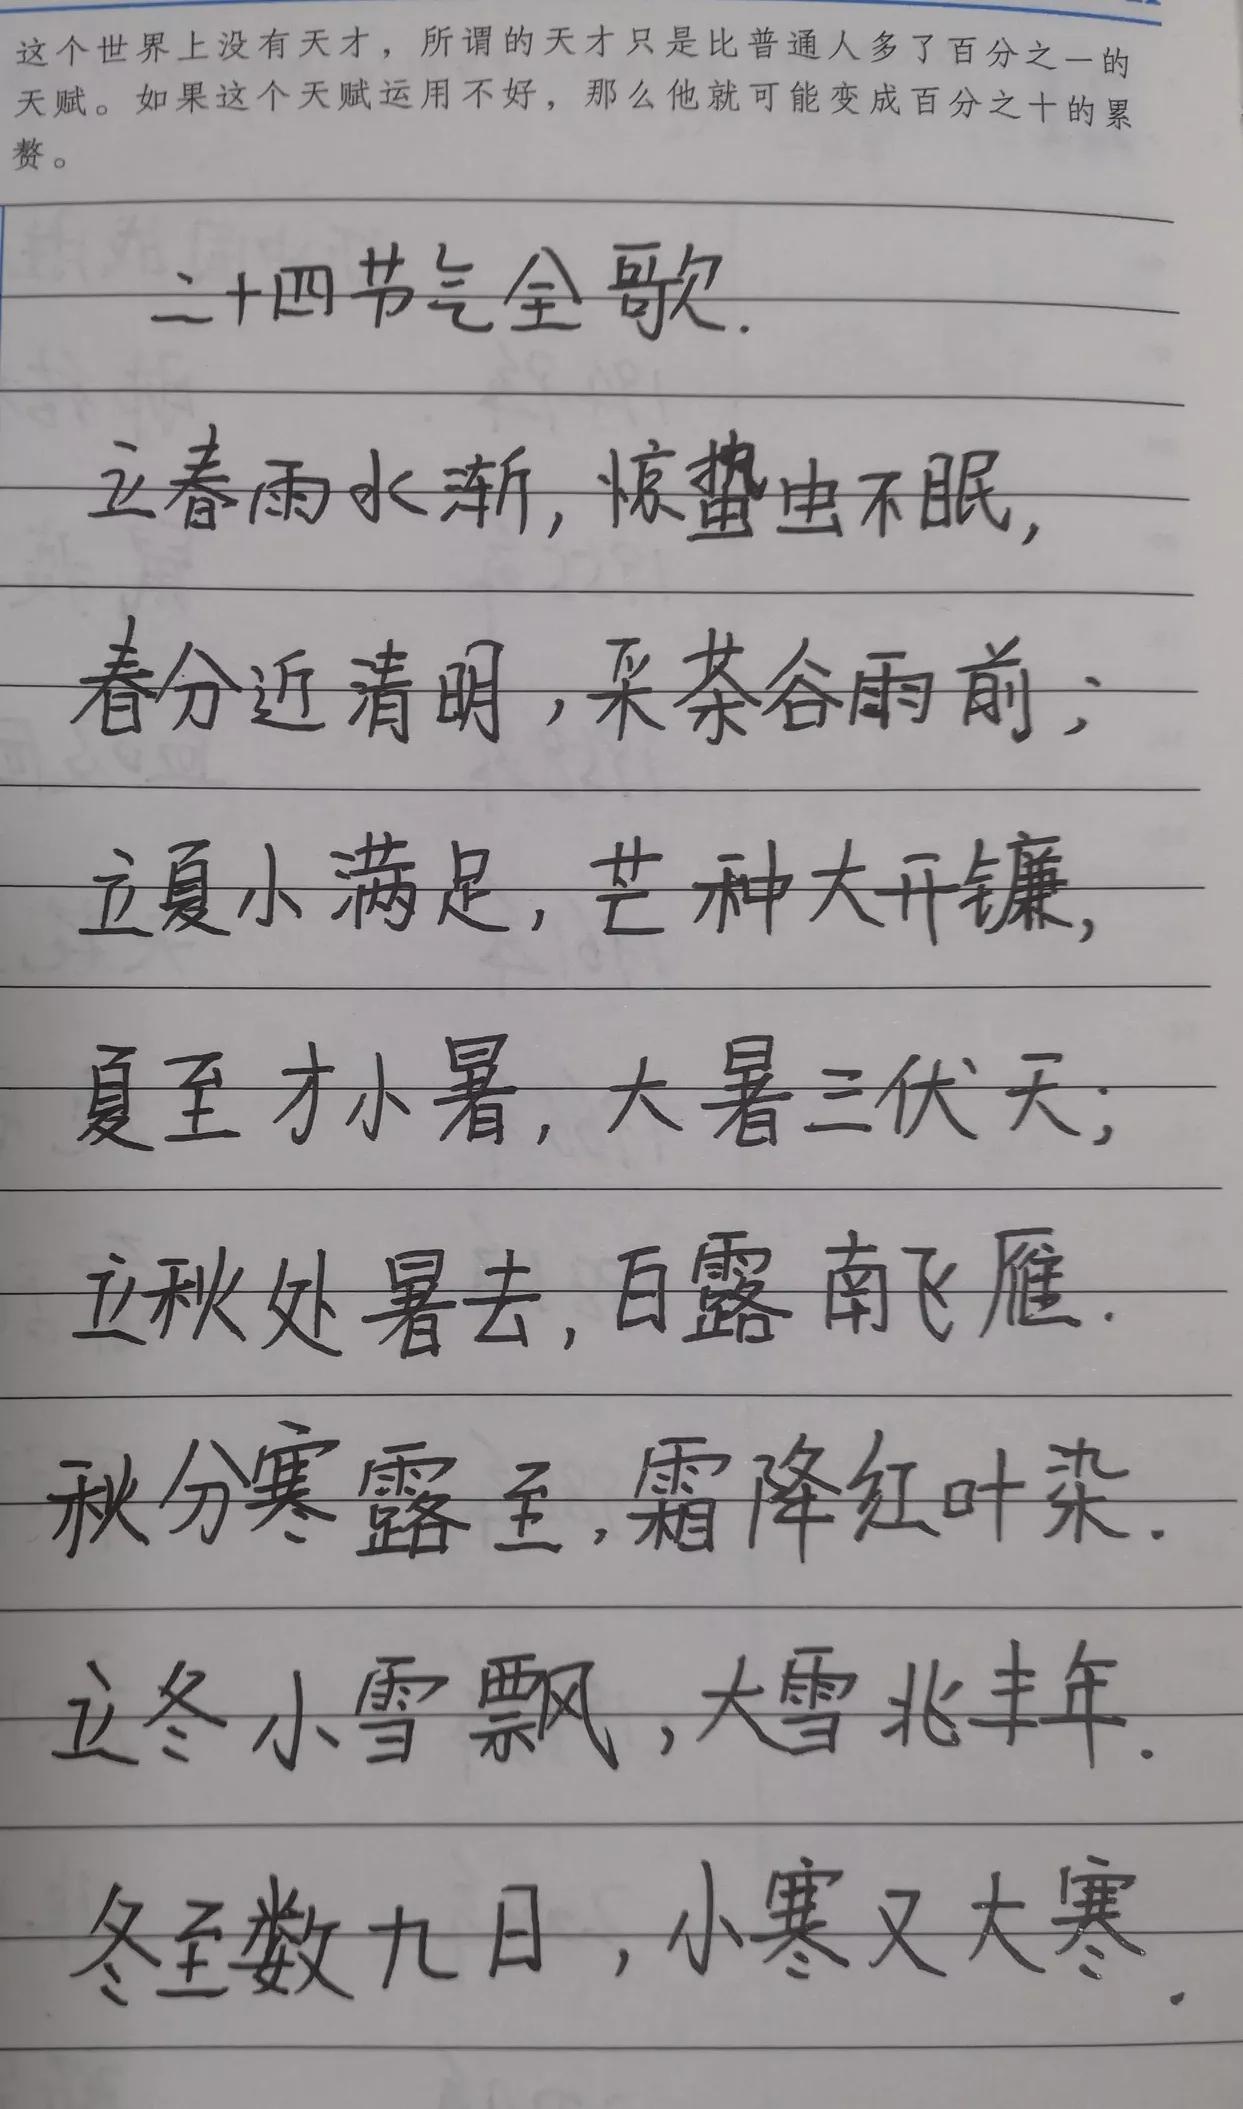 这个世界上没有天才，所谓的天才只是比普通人多了百分之一的
天赋。如果这个天赋运用不好，那么他就可能变成百分之十的累
赘。
二十四节气全歌.
立春雨水渐，惊蛰虫不眠，
春分近清明，采茶谷雨前；
立夏小满足，芒种大开镰，
夏至才小暑，大暑三伏天；
立秋处暑去，白露南飞雁.
秋分寒露至，霜降红叶染.
立冬小雪飘，大雪兆丰年.
冬至数九日，小寒又大寒.